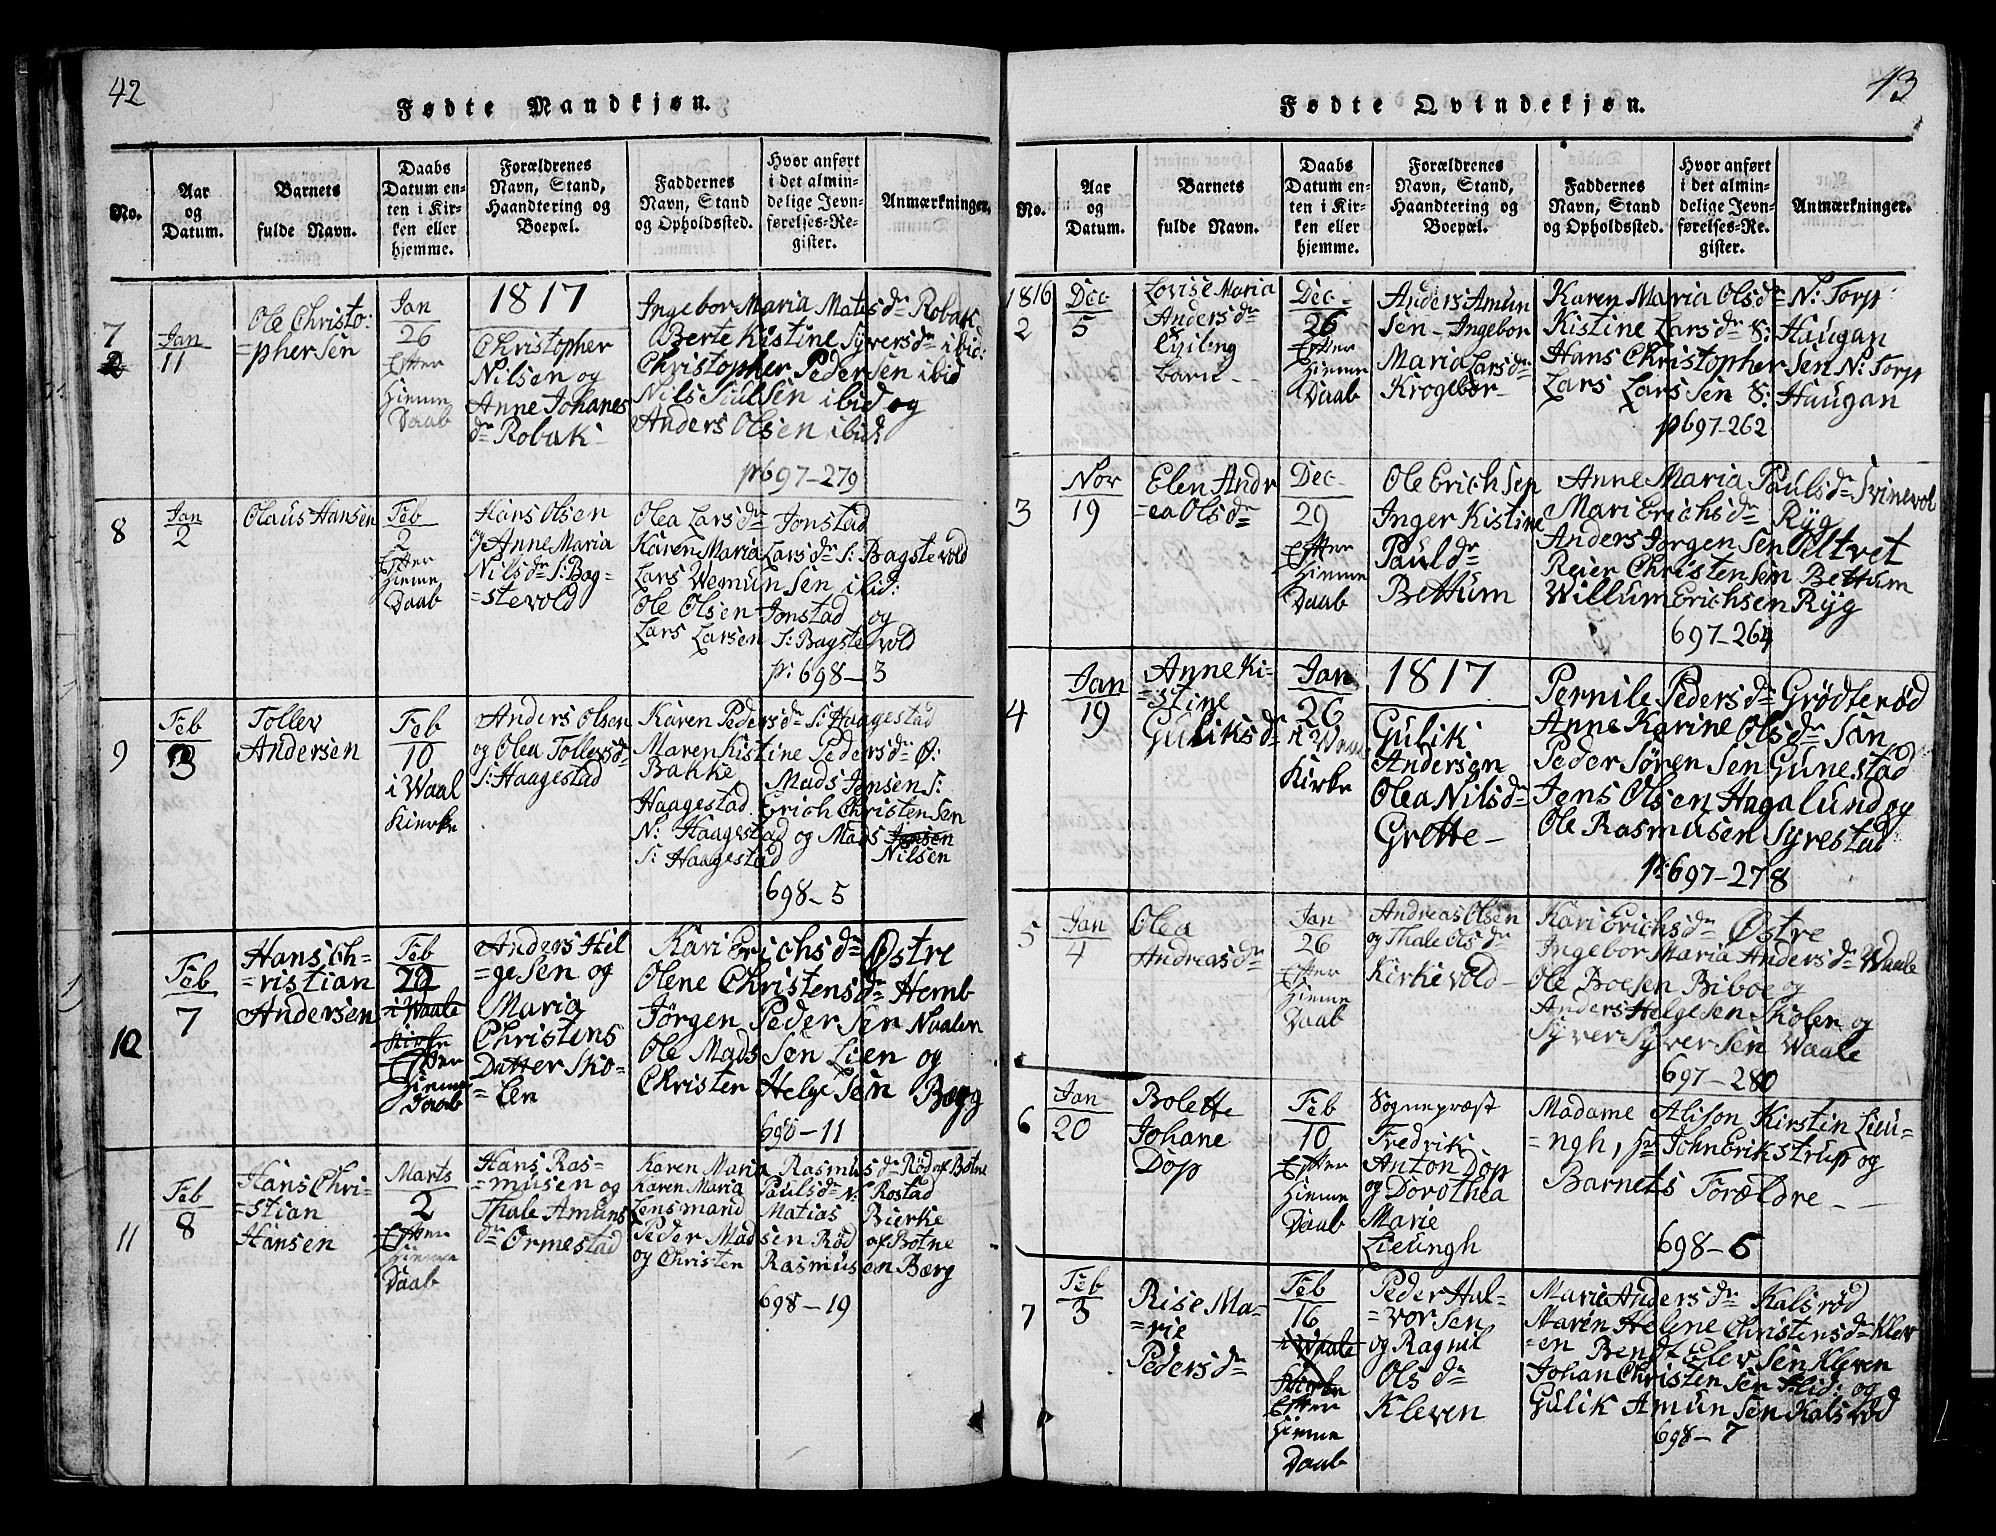 42
Fødte Mandkjøn.
No.
Aar
og
Datum.
Barnets
fulde Navn.
Daabs
Datum en-
ten i Kir-
ken eller
hjemme.
Forældrenes
Navn, Stand,
Haandtering og
Boepæl.
Faddernes
Navn, Stand
og Opholdssted.
Hvor anført
i det almin-
delige Jevn-
førelses-Re-
gister.
Anmærkninger.
7
Jan
11
Ole Christo:
=phersen
Jan
26
Efter
Hiemme
Daab
1817
Christopher
Nilsen og
Anne Johanes
dr Robak
Ingebor Maria Matsdr Robak
Berte Kistine Syversdr ibid:
Christopher Pedersen ibid
Nils Juulsen ibid og
Anders Olsen ibid:
p 697-279
8
Jan
2
Olaus Hansen
Feb
2
Efter
Hiemme
Daab
Hans Olsen
og Anne Maria
Nilsdr S: Bag=
=stevold
Olea Larsdr Jonstad
Karen Maria Larsdr S: Bagstevold
Lars Wemunsen ibid:
Ole Olsen Jonstad og
Lars Larsen S: Bagstevold
p: 698-3
9
Feb
3
Tollev
Andersen
Feb
10
i Waal
Kierke
Anders Olsen
og Olea Tollevsdr
S: Haagestad
Karen Pedersdr S: Haagestad
Maren Kistine Pedersdr Ø:
Bakke Mads Jensen S:
Haagestad Erich Christensen
N: Haagestad og Mads Jensen
S: Haagestad Nilsen
698-5
10
Feb
7
Hans Ch=
=ristian
Andersen
Feb
20
i Waale
Kirke
Efter
Hiemme
Daab
Anders Hel
=gesen og
Maria
Christens
Datter Sko=
=len
Kari Erichsdr Østre
Olene Christensdr Hemb
Jørgen Pedersen Naalen
Ole Madssen Lien og
Christen Helgesen Bærg
698-11
11
Feb
8
Hans Chri=
=stian
Hansen
Marts
2
Efter
Hiemme
Daab
Hans Ras=
=musen og
Thale Amuns
dr Ormestad
Karen Maria Rasmusdr Rød af Botne
Karen Maria Paulsdr N: Rostad
Lensmand Matias Bierke
Peder Madsen Rød af Botne
og Christen Rasmusen Bærg
698-19
43
Fødte Qvindekjøn.
No.
Aar
og
Datum.
Barnets
fulde Navn.
Daabs
Datum en-
ten i Kir-
ken eller
hjemme.
Forældrenes
Navn, Stand,
Haandtering og
Boepæl.
Faddernes
Navn, Stand
og Opholdssted.
Hvor anført
i det almin-
delige Jevn-
førelses-Re-
gister.
Anmærkninger.
1816
2
Dec
5
Lovise Maria
Andersdr
Barn
Dec
26
Efter
Hiemme
Daab
Anders Amun
sen - Ingebor
Maria Larsdr
Krogebor
Karen Maria Olsdr N: Torp
Kistine Larsdr S: Haugan
Hans Christophersen N: Torp
Lars Larssen S: Haugan
p 697-262
3
Nov
19
Elen Andr
=ea Olsdr
Dec
29
Efter
Hiemme
Daab
Ole Erichsen
Inger Kistine
Pauldr
Bettum
Anne Maria Paulsdr Svinevol
Mari Erichsdr Ryg
Anders Jørgensen Piltvet
Reier Christensen Bettum
Willum Erichsen Ryg
697-264
4
Jan
19
Anne Ki-
=stine
Guliksdr
Jan
26
i Waale
Kirke
1817
Gulik
Andersen
Olea Nilsdr
Grette
Pernile Pedersdr Grødterød
Anne Karine Olsdr San
Peder Sørensen Gunestad
Jens Olsen Hagalund og
Ole Rasmusen Syrestad
p: 697-278
5
Jan
4
Olea
Andreasdr
Jan
26
Efter
Hiemme
Daab
Andreas Olsen
og Thale Olsdr
Kirkevold
Kari Erichsdr Østre
Ingebor Maria Andersdr Waale
Ole Boesen Biboe og
Anders Helgesen Skolen og
Syver Syversen Waale
697-280
6
Jan
20
Bolette
Johane
Dop
Feb
10
Efter
Hiemme
Daab
Sognepræst
Fredrik
Anton Dop
og Dorothea
Marie
Lieungh
Madame Alison Kirstin Lieu-
=ngh, hr John Erikstrup og
Barnets Forældre
698-6
7
Feb
3
Rise Ma=
=rie
Pedersdr
Feb
16
i Waale
Kirke
Efter
Hiemme
Daab
Peder Hal-
=vorsen
og Ragnil
Olsdr
Kleven
Marie Andersdr Kalsrød
Maren Helene Christensdr Klev
=en Bendt Elevsen Kleven
Johan Christensen ibid: og
Gulik Amunsen Kalsrød
698-7